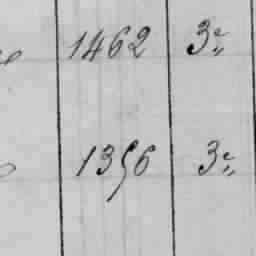 1462 3e
1356 3e